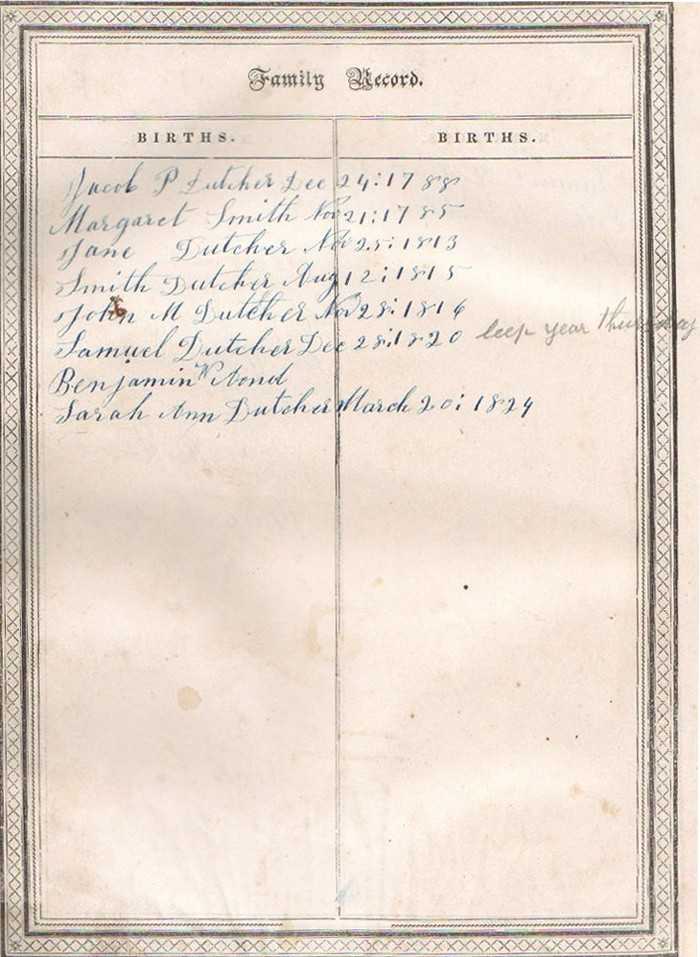 Family Record.
BIRTHS. BIRTHS.
Jacob P Dutcher Dec 24: 1788
Margaret Smith Nov 21: 1785
Jane Dutcher Nov 25: 1813
Smith Dutcher Aug 12: 1815
John M Dutcher Nov 28: 1816
Samuel Dutcher Dec 28: 1820 leep year thursday
Benjamin W
Sarah Ann Dutcher March 20: 1824